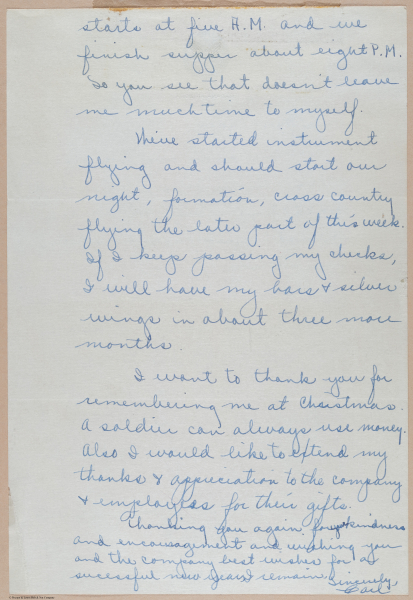 starts at five A.M. and we
finish supper about eight P.M.
So you see that doesn't leave
me much time to myself.
We've started instrument
flying and should start our
night, formation, cross country
flying the later part of this week.
If I keep passing my checks,
I will have my bars & silver
wings in about three more
months.
I want to thank you for
remembering me at Christmas.
A soldier can always use money.
Also I would like to extend my
thanks & appreciation to the company
& employees for their gifts.
Thanking you again for your kindness
and encouragement and wishing you
and the company best wishes for a
sucessful new year I remain
Sincerely,
Earl